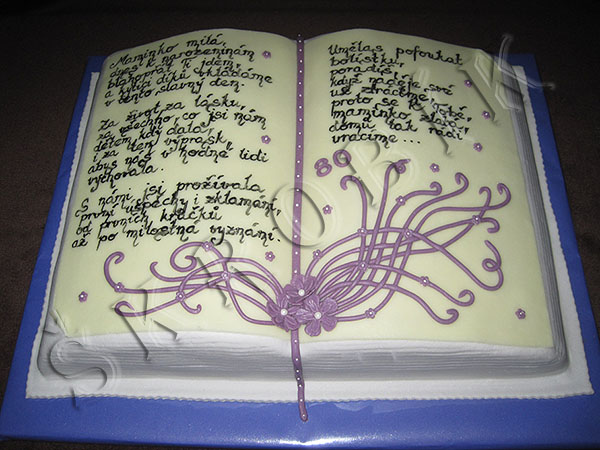 Maminko milá,
dnes k narozeninám
blahopřát ti jdem,
a kytici díků vkládáme
v tento slavný den.
Za život, za lásku,
za všechno, co jsi nám
dětem kdy dala,
i za ten výprask,
abys nás v hodné lidi
vychovala.
S námi jsi prožívala
první úspěchy i zklamání,
od prvních krůčků
až po milostná vyznání.
Umělas pofoukat
bolístku,
poradit,
když naděje své
už ztratíme,
proto se k tobě,
maminko zlatá,
domů tak rádi
vracíme...
80
ŠKROBÁK